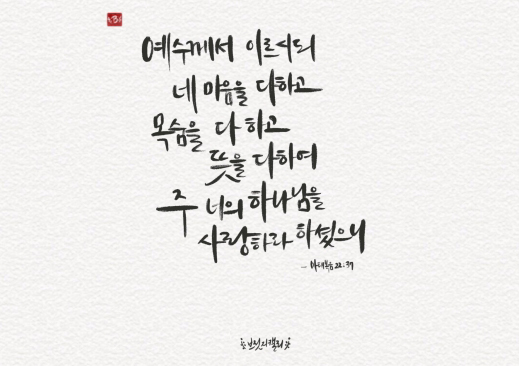 예수께서 이르시되
네 마음을 다하고
목숨을 다 하고
뜻을 다하여
주 너의 하나님을
사랑하라 하셨으니
마태복음 22:37